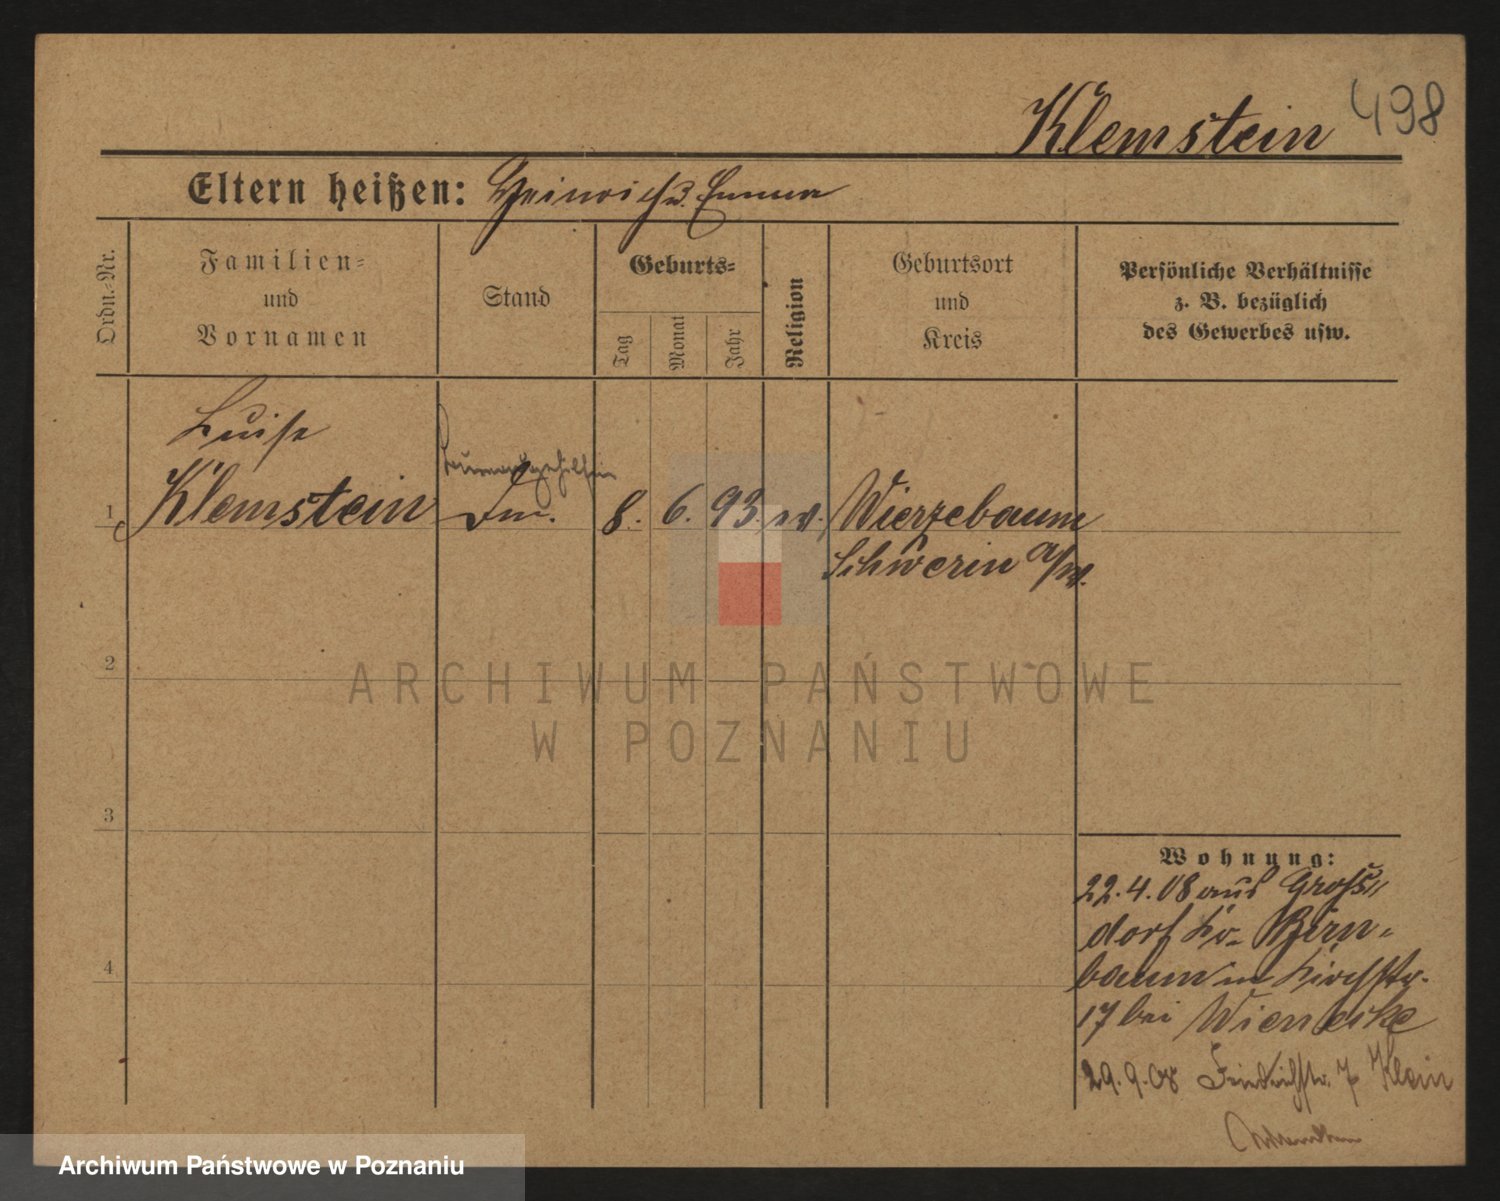 Klemstein 498
Eltern heißen: Heinrich u. Emma
Ordn.-Nr.
Familien-
und
Vornamen
Stand
Geburts-
Tag
Monat
Jahr
Religion
Geburtsort
und
Kreis
Persönliche Verhältnisse
z. B. bezüglich
des Gewerbes usw.
Luise
1 Klemstein 8. 6. 93. ev. Wierzebaum
Schwerin a/W.
2
3
4
Wohnung:
22.4.08 aus Groß-
dorf Kr. Birn-
baum in Kirchstr.
17 bei Wienecke
29.9.08 Friedrichstr. 7 Klein
ARCHIWUM PAŃSTWOWE
W POZNANIU
Archiwum Państwowe w Poznaniu